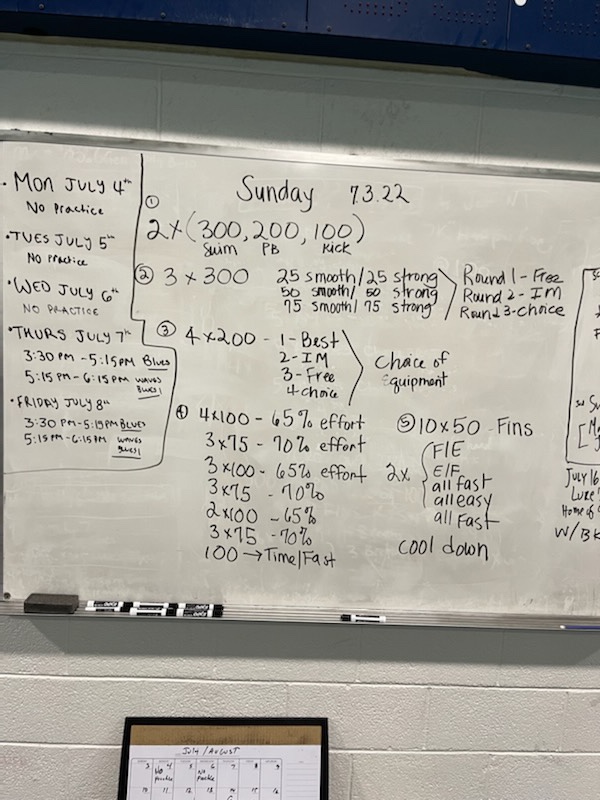 • MON JULY 4th
NO Practice
• TUES JULY 5th
NO Practice
• WED JULY 6th
NO PRACTICE
• THURS JULY 7th
3:30 PM - 5:15 PM BLUES
5:15 PM - 6:15 PM WAVES
BLUES 1
• FRIDAY JULY 8th
3:30 PM - 5:15 PM BLUES
5:15 PM - 6:15 PM WAVES
BLUES 1
Sunday 7.3.22
①
2 x (300, 200, 100)
Swim PB Kick
② 3 x 300
25 smooth / 25 strong
50 smooth / 50 strong
75 smooth / 75 strong
Round 1 - Free
Round 2 - IM
Round 3 - choice
③ 4 x 200 - 1 - Best
2 - IM
3 - Free
4 choice
Choice of
Equipment
④ 4 x 100 - 65% effort
3 x 75 - 70% effort
3 x 100 - 65% effort
3 x 75 - 70%
2 x 100 - 65%
3 x 75 - 70%
100 → Time/Fast
⑤ 10 x 50 - Fins
2x
F/E
E/F
all fast
all easy
all Fast
cool down
July 16
Home of
W/ BK
JULY / AUGUST
3 4 5 6 7 8 9
No
practice
No
practice
10 11 12 13 14 15 16